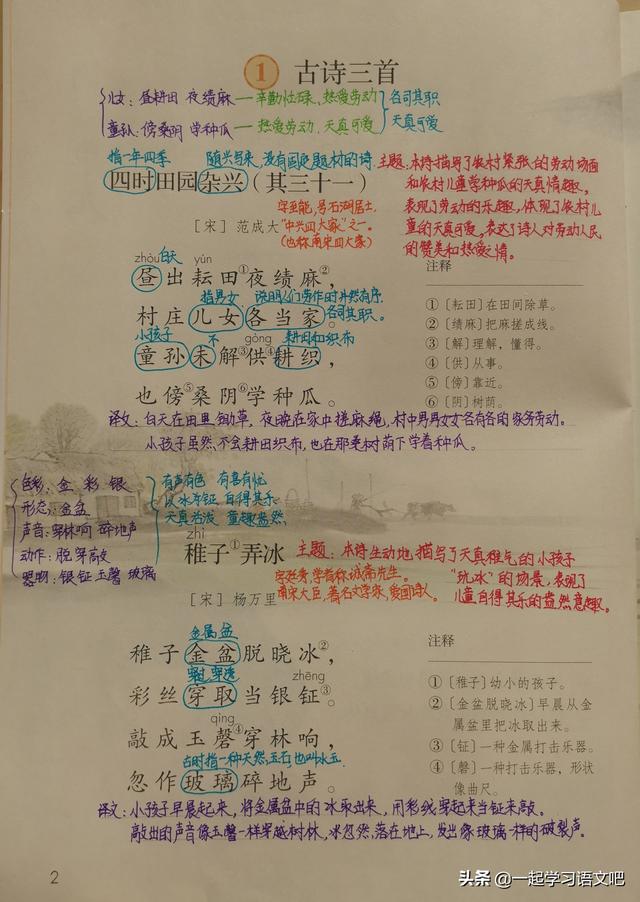 ① 古诗三首
儿女：昼耕田 夜绩麻—辛勤忙碌、热爱劳动
各司其职
童孙：傍桑阴 学种瓜—热爱劳动、天真可爱
天真可爱
指一年四季 随兴写来，没有固定题材的诗
四时田园杂兴（其三十一）
［宋］范成大
字至能，号石湖居士，
“中兴四大家”之一。
（也称南宋四大家）
主题：本诗描写了农村紧张的劳动场面
和农村儿童学种瓜的天真情趣。
表现了劳动的乐趣，体现了农村儿
童的天真可爱，表达了诗人对劳动人民
的赞美和热爱之情。
zhòu 白天 yún
昼出耘田①夜绩麻②，
指男女 说明人们劳作时井然有序，
各司其职。
村庄儿女各当家。
小孩子 不 gòng 耕田和织布
童孙未解③供④耕织，
也傍⑤桑阴⑥学种瓜。
注释
①〔耘田〕在田间除草。
②〔绩麻〕把麻搓成线。
③〔解〕理解，懂得。
④〔供〕从事。
⑤〔傍〕靠近。
⑥〔阴〕树荫。
译文：白天在田里锄草，夜晚在家中搓麻绳，村中男男女女各有各的家务劳动。
小孩子虽然不会耕田织布，也在那桑树荫下学着种瓜。
色彩：金 彩 银
形态：金盆
声音：穿林响 碎地声
动作：脱 穿 敲
器物：银钲 玉磬 玻璃
有声有色 有喜有忧
以冰为钲 自得其乐
天真活泼 童趣盎然
zhì
稚子①弄冰
［宋］杨万里
字廷秀，学者称诚斋先生。
南宋大臣，著名文学家，爱国诗人。
主题：本诗生动地描写了天真稚气的小孩子
“玩冰”的场景，表现了
儿童自得其乐的盎然意趣。
金属盆
稚子金盆脱晓冰②，
穿过，穿透 zhēng
彩丝穿取当银钲③。
qìng
敲成玉磬④穿林响，
古时指一种天然玉石，也叫水玉
忽作玻璃碎地声。
注释
①〔稚子〕幼小的孩子。
②〔金盆脱晓冰〕早晨从金
属盆里把冰取出来。
③〔钲〕一种金属打击乐器。
④〔磬〕一种打击乐器，形状
像曲尺。
译文：小孩子早晨起来，将金属盆中的冰取出来，用彩线穿起来当钲来敲。
敲出的声音像玉磬一样穿越树林，冰忽然落在地上，发出像玻璃一样的破裂声。
2
头条 @一起学习语文吧